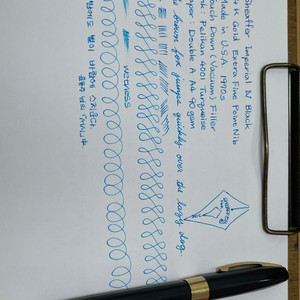 Sheaffer Imperial IV Black
14k Gold Extra Fine Point Nib
Made in U.S.A 1990s
Touch Down (Vacuum) Filler
Ink: Pelikan 4001 Turquoise
Paper: Double A A4 90gsm
brown fox jumps quickly over the lazy dog.
WETNESS
밤에도 별이 바람에 스치운다.